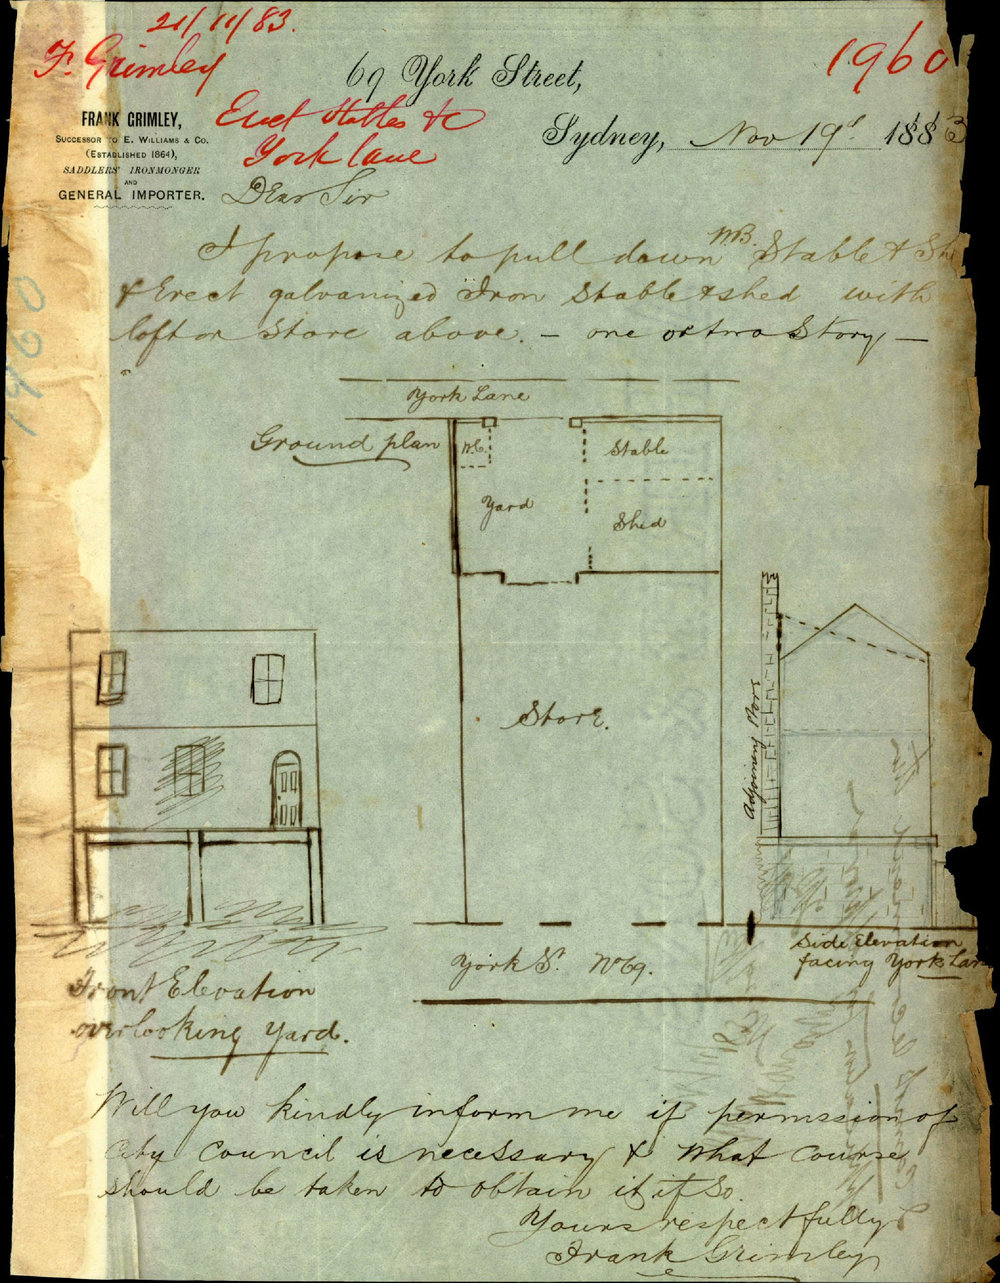 21/11/83.
F. Grimley
1960
69 York Street,
Erect Stables &c
York Lane
FRANK GRIMLEY,
SUCCESSOR TO E. WILLIAMS & CO.
(ESTABLISHED 1864),
SADDLERS' IRONMONGER
AND
GENERAL IMPORTER.
Sydney, Nov 19th 1883
Dear Sir
I propose to pull down W.B. Stable & She
& Erect galvanized Iron Stable & shed with
loft or Store above. – one or two Story –
1960
York Lane
Ground plan
W.C.
Stable
Yard
Shed
Store.
Adjoining Store
York St. No 69.
Side Elevation
facing York Lan
Front Elevation
overlooking Yard.
Will you kindly inform me if permssion of
City Council is necessary & what course
should be taken to obtain it if so.
Yours respectfully
Frank Grimley